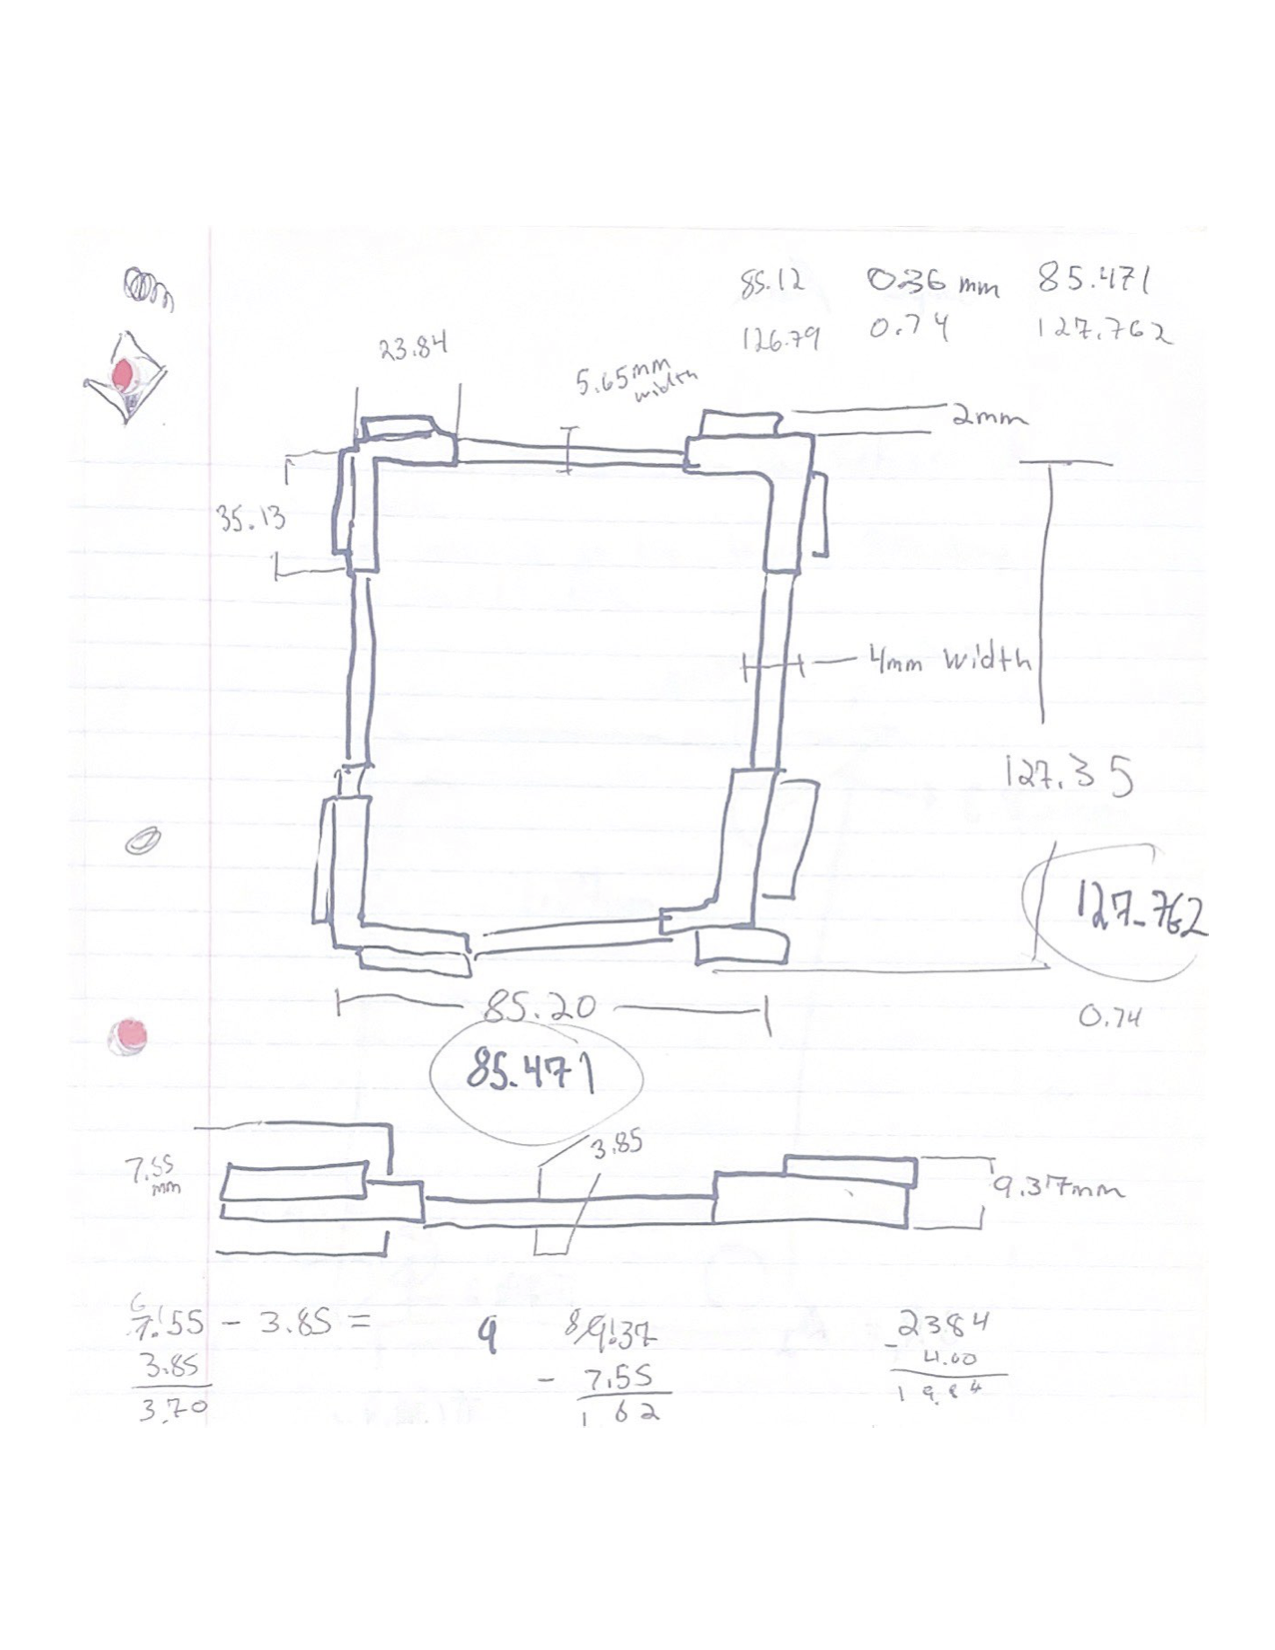 85.12 0.36 mm 85.471
126.79 0.74 127.762
23.84
5.65mm
width
2mm
35.13
4mm width
127.35
127.762
85.20
0.74
85.471
3.85
7.55
mm
9.37mm
6
7.55 - 3.85 =
3.85
3.70
9
8 9.37
- 7.55
1 62
2384
- 4.00
19.84